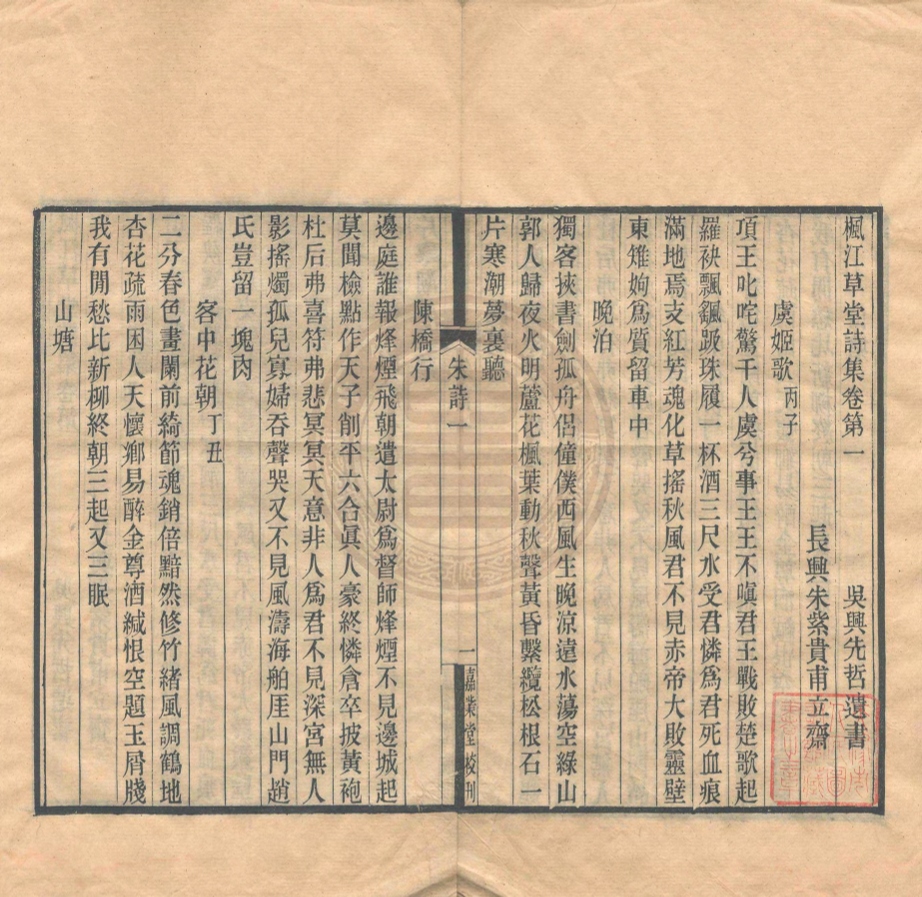 楓江草堂詩集卷第一 吳興先哲遺書
長興朱紫貴甫立齋
虞姬歌 丙子
項王叱咤驚千人虞兮事王王不嗔君王戰敗楚歌起
羅袂飄颻跋珠履一杯酒三尺水受君憐爲君死血痕
滿地焉支紅芳魂化草搖秋風君不見赤帝大敗靈壁
東雉姁爲質留車中
晚泊
獨客挾書劍孤舟侶僮僕西風生晚涼遠水蕩空綠山
郭人歸夜火明蘆花楓葉動秋聲黃昏繫纜松根石一
片寒潮夢裏聽
朱詩一
一
嘉業堂校刊
陳橋行
邊庭誰報烽煙飛朝遣太尉爲督師烽煙不見邊城起
莫聞檢點作天子削平六合眞人豪終憐倉卒披黃袍
杜后弗喜符弗悲冥冥天意非人爲君不見深宮無人
影搖燭孤兒寡婦吞聲哭又不見風濤海舶厓山門趙
氏豈留一塊肉
客中花朝 丁丑
二分春色畫闌前綺節魂銷倍黯然修竹緒風調鶴地
杏花疏雨困人天懷鄉易醉金尊酒緘恨空題玉屑牋
我有閒愁比新柳終朝三起又三眠
山塘